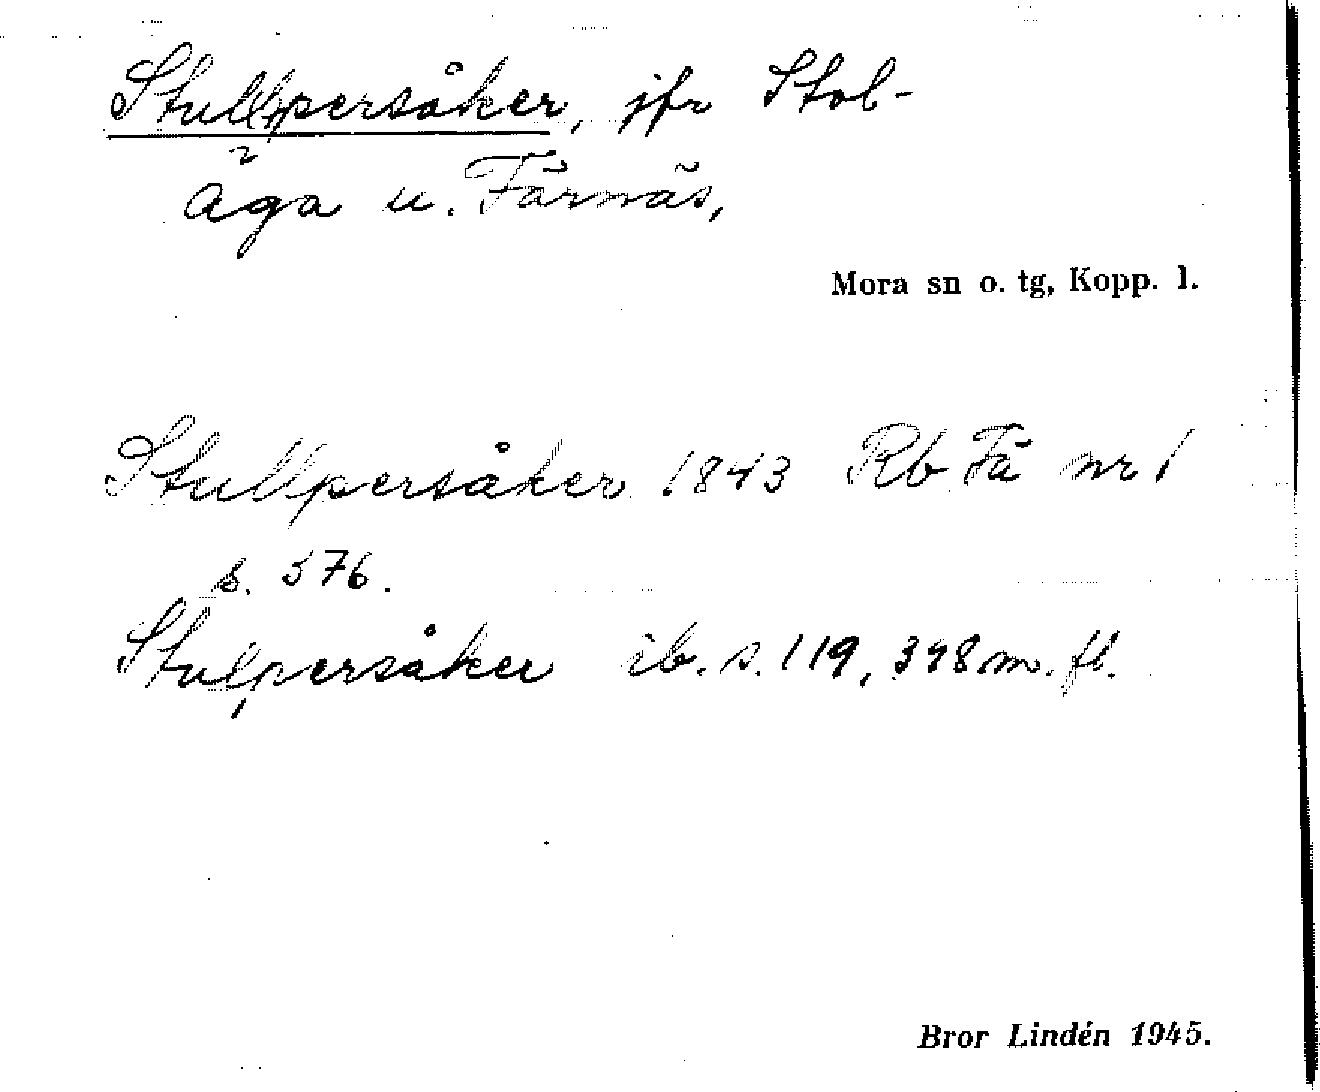 Stullpersåker, jfr Stol-
Äga u. Färnäs,
Mora sn o. tg, Kopp. l.
Stullpersåker 1843 Rb Fä nr 1
s. 576.
Stulpersåker ib. s. 119, 398 m. fl.
Bror Lindén 1945.